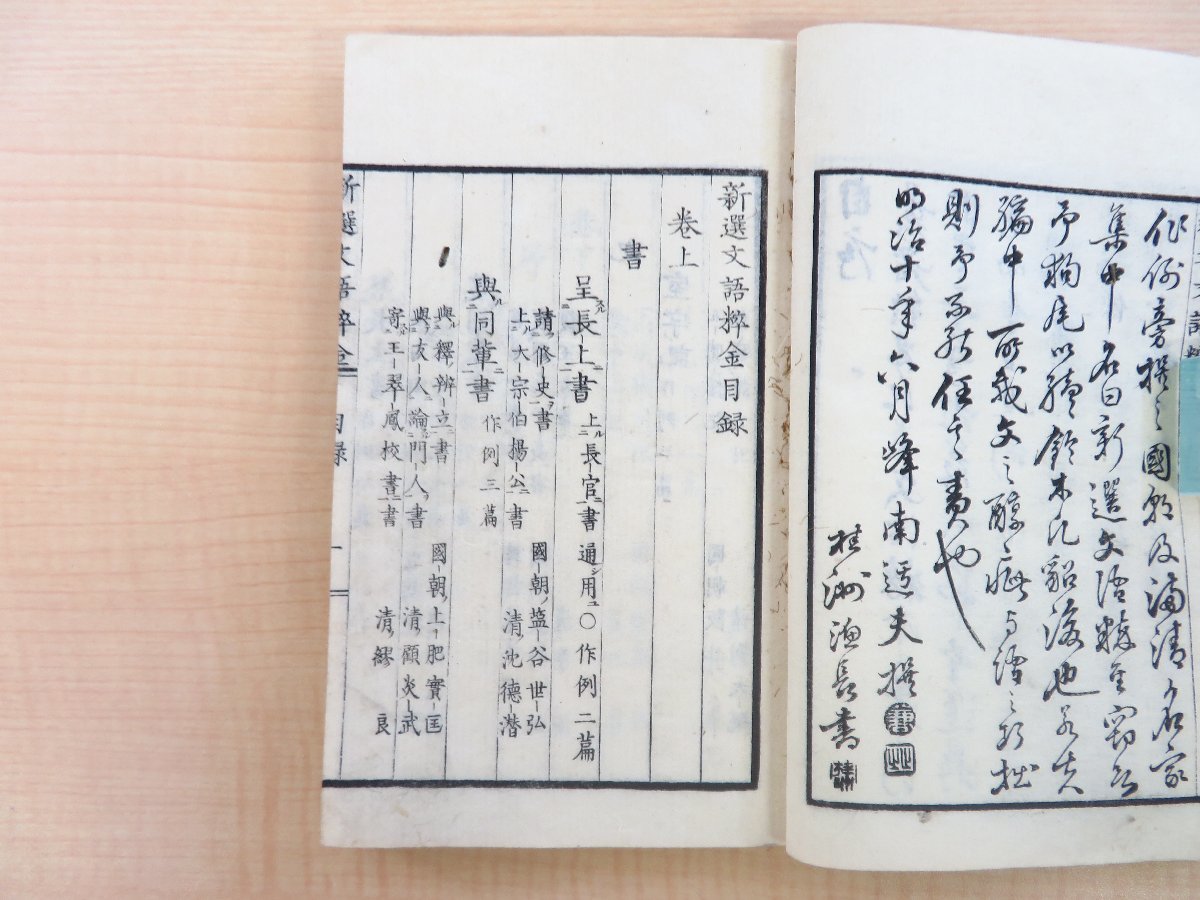 作例旁撰之國朝及滿清名家
集中名曰新選文語粹金竊以
予狗尾以續鈴木氏貂後也若夫
編中所載文之醇疵與語之巧拙
則予不能任其責也
明治十年六月峰南迂夫撰
桂洲漁長書
新選文語粹金目録
卷上
書
呈長上書 上長官書通用〇作例二篇
請修史書 國朝塩谷世弘
上大宗伯楊公書 清沈德潛
與同輩書 作例三篇
與釋辨立書 國朝上肥實匡
與友人論門人書 清顧炎武
寄王翠鳳校書書 清繆艮
新選文語粹金 目録 一